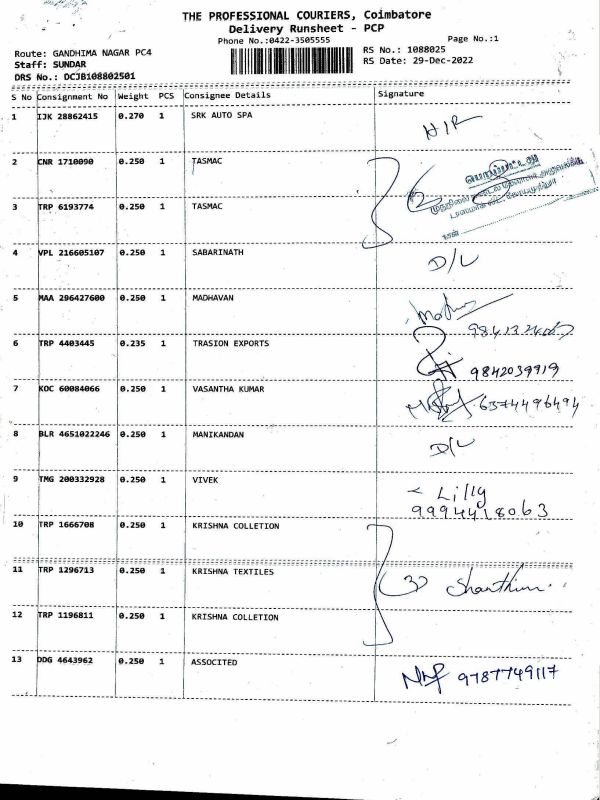 THE PROFESSIONAL COURIERS, Coimbatore
Delivery Runsheet - PCP
Phone No.:0422-3505555
Page No.:1
Route: GANDHIMA NAGAR PC4
RS No.: 1088025
Staff: SUNDAR
RS Date: 29-Dec-2022
DRS No.: DCJB108802501
S No Consignment No Weight PCS Consignee Details Signature
1 IJK 28862415 0.270 1 SRK AUTO SPA
2 CNR 1710090 0.250 1 TASMAC
3 TRP 6193774 0.250 1 TASMAC
4 VPL 216605107 0.250 1 SABARINATH D/L
5 MAA 296427600 0.250 1 MADHAVAN
6 TRP 4403445 0.235 1 TRASION EXPORTS 9842039919
7 KOC 60084066 0.250 1 VASANTHA KUMAR 6374496494
8 BLR 4651022246 0.250 1 MANIKANDAN D/L
9 TMG 200332928 0.250 1 VIVEK Lilly
9994418063
10 TRP 1666708 0.250 1 KRISHNA COLLETION
11 TRP 1296713 0.250 1 KRISHNA TEXTILES
12 TRP 1196811 0.250 1 KRISHNA COLLETION
13 DDG 4643962 0.250 1 ASSOCITED 9787749117